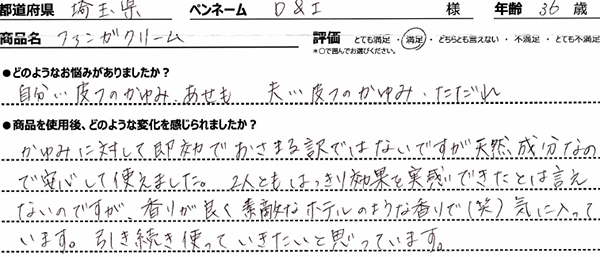 都道府県 埼玉県 ペンネーム D&I 様 年齢 36 歳
商品名 ファンガクリーム 評価 とても満足 ・ 満足 ・ どちらとも言えない ・ 不満足 ・ とても不満足
*○で囲んでお選びください。
●どのようなお悩みがありましたか?
自分…皮フのかゆみ、あせも 夫…皮フのかゆみ・ただれ
●商品を使用後、どのような変化を感じられましたか?
かゆみに対して即効でおさまる訳ではないですが天然成分なの
で安心して使えました。 2人ともはっきり効果を実感できたとは言え
ないのですが、香りが良く素敵なホテルのような香りで(笑)気に入って
います。引き続き使っていきたいと思っています。